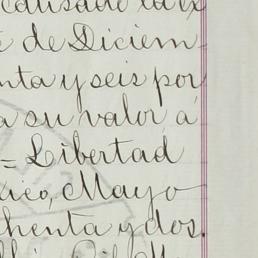 de Diciem
nta y seis por
a su valor á
= Libertad
xico, Mayo
chenta y dos.